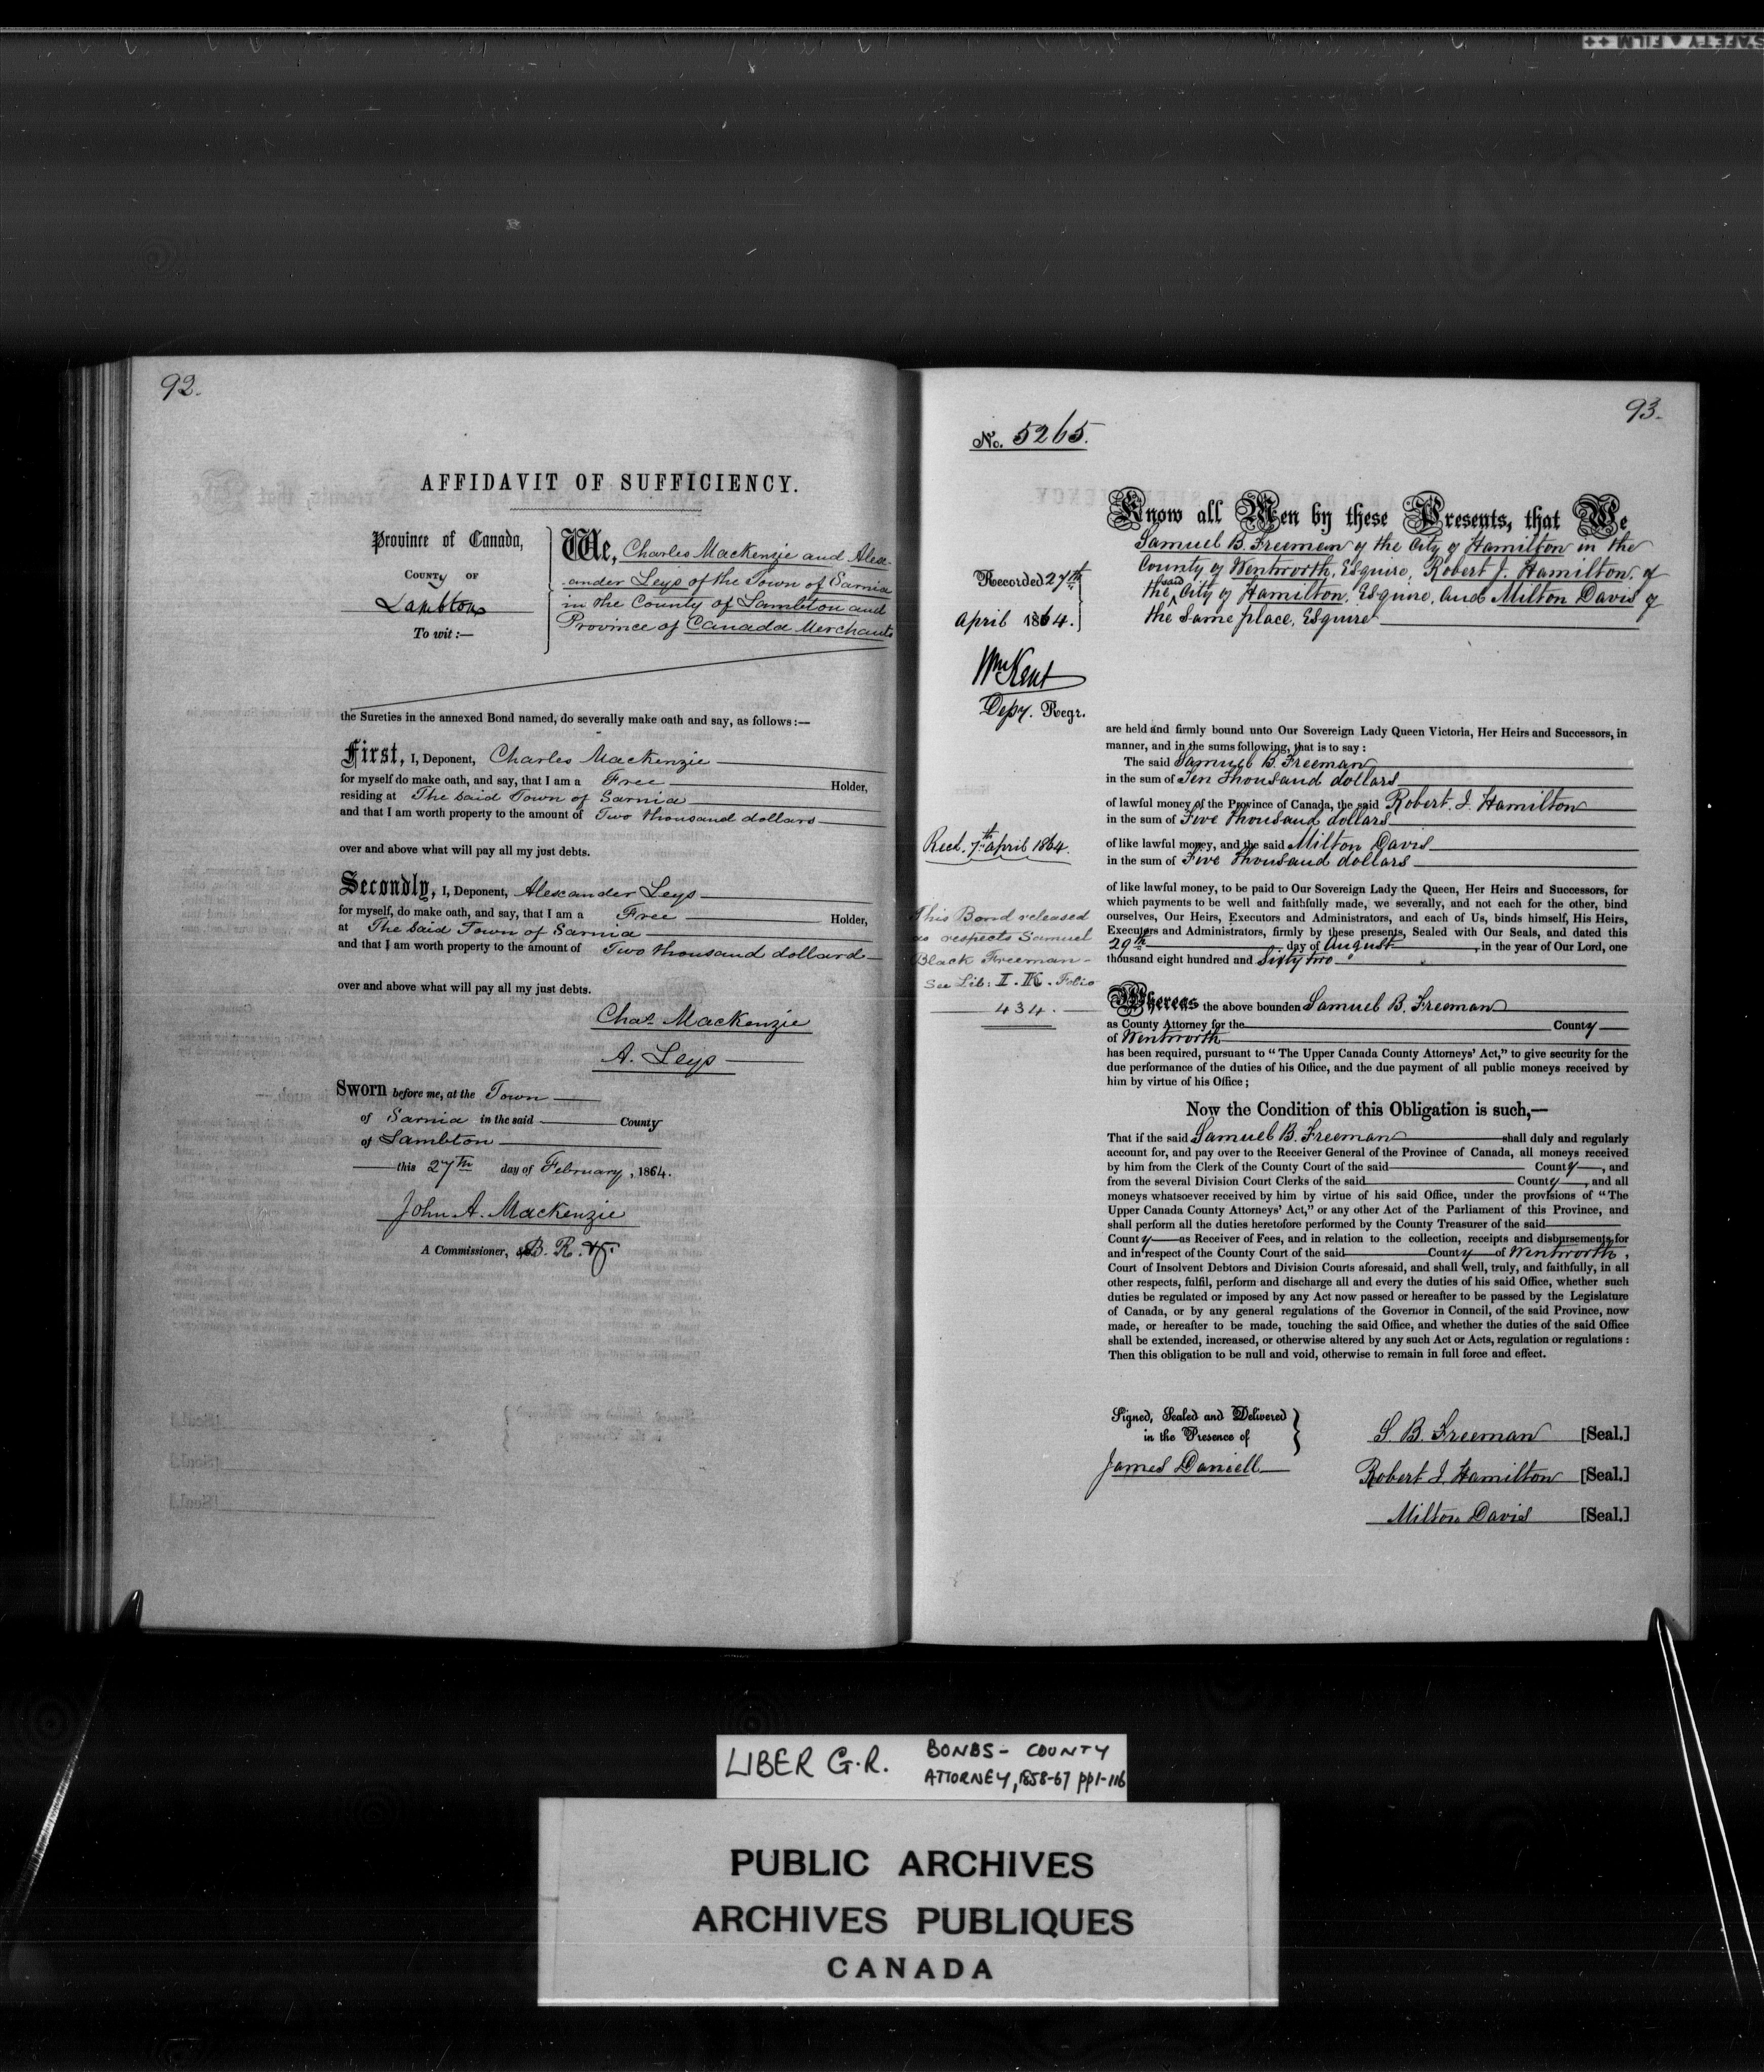 SAFETY FILM ++
92.
AFFIDAVIT OF SUFFICIENCY.
Province of Canada,
COUNTY OF
Lambton
To wit:—
We, Charles Mackenzie and Alex-
ander Leys of the Town of Sarnia
in the County of Lambton and
Province of Canada Merchants
the Sureties in the annexed Bond named, do severally make oath and say, as follows:—
First, I, Deponent, Charles Mackenzie
for myself do make oath, and say, that I am a Free Holder,
residing at The said Town of Sarnia
and that I am worth property to the amount of Two thousand dollars
over and above what will pay all my just debts.
Secondly, I, Deponent, Alexander Leys
for myself, do make oath, and say, that I am a Free Holder,
at The said Town of Sarnia
and that I am worth property to the amount of Two thousand dollars
over and above what will pay all my just debts.
Chas. Mackenzie
A. Leys
Sworn before me, at the Town
of Sarnia in the said County
of Lambton
this 27th day of February, 1864.
John A. Mackenzie
A Commissioner, &c B. R. &c.
93.
No. 5265.
Recorded 27th
April 1864.
Wm Kent
Depy. Regr.
Recd. 7th April 1864.
This Bond released
as respects Samuel
Black Freeman-
See Lib: I. K. Folio
434.
Know all Men by these Presents, that We
Samuel B. Freeman of the City of Hamilton in the
County of Wentworth, Esquire, Robert J. Hamilton, of
the said City of Hamilton, Esquire, and Milton Davis of
the same place, Esquire
are held and firmly bound unto Our Sovereign Lady Queen Victoria, Her Heirs and Successors, in
manner, and in the sums following, that is to say:
The said Samuel B. Freeman
in the sum of Ten Thousand dollars
of lawful money of the Province of Canada, the said Robert. J. Hamilton
in the sum of Five thousand dollars
of like lawful money, and the said Milton Davis
in the sum of Five thousand dollars
of like lawful money, to be paid to Our Sovereign Lady the Queen, Her Heirs and Successors, for
which payments to be well and faithfully made, we severally, and not each for the other, bind
ourselves, Our Heirs, Executors and Administrators, and each of Us, binds himself, His Heirs,
Executors and Administrators, firmly by these presents, Sealed with Our Seals, and dated this
29th day of August, in the year of Our Lord, one
thousand eight hundred and Sixty two
Whereas the above bounden Samuel B. Freeman
as County Attorney for the County
of Wentworth
has been required, pursuant to "The Upper Canada County Attorneys' Act," to give security for the
due performance of the duties of his Office, and the due payment of all public moneys received by
him by virtue of his Office;
Now the Condition of this Obligation is such,—
That if the said Samuel B. Freeman shall duly and regularly
account for, and pay over to the Receiver General of the Province of Canada, all moneys received
by him from the Clerk of the County Court of the said County, and
from the several Division Court Clerks of the said County, and all
moneys whatsoever received by him by virtue of his said Office, under the provisions of "The
Upper Canada County Attorneys' Act," or any other Act of the Parliament of this Province, and
shall perform all the duties heretofore performed by the County Treasurer of the said
County as Receiver of Fees, and in relation to the collection, receipts and disbursements for
and in respect of the County Court of the said County of Wentworth,
Court of Insolvent Debtors and Division Courts aforesaid, and shall well, truly, and faithfully, in all
other respects, fulfil, perform and discharge all and every the duties of his said Office, whether such
duties be regulated or imposed by any Act now passed or hereafter to be passed by the Legislature
of Canada, or by any general regulations of the Governor in Council, of the said Province, now
made, or hereafter to be made, touching the said Office, and whether the duties of the said Office
shall be extended, increased, or otherwise altered by any such Act or Acts, regulation or regulations:
Then this obligation to be null and void, otherwise to remain in full force and effect.
Signed, Sealed and Delivered
in the Presence of
James Daniell
S. B. Freeman [Seal.]
Robert J. Hamilton [Seal.]
Milton Davis [Seal.]
LIBER G.R.
BONDS - COUNTY
ATTORNEY, 1858-67 pp1-116
PUBLIC ARCHIVES
ARCHIVES PUBLIQUES
CANADA